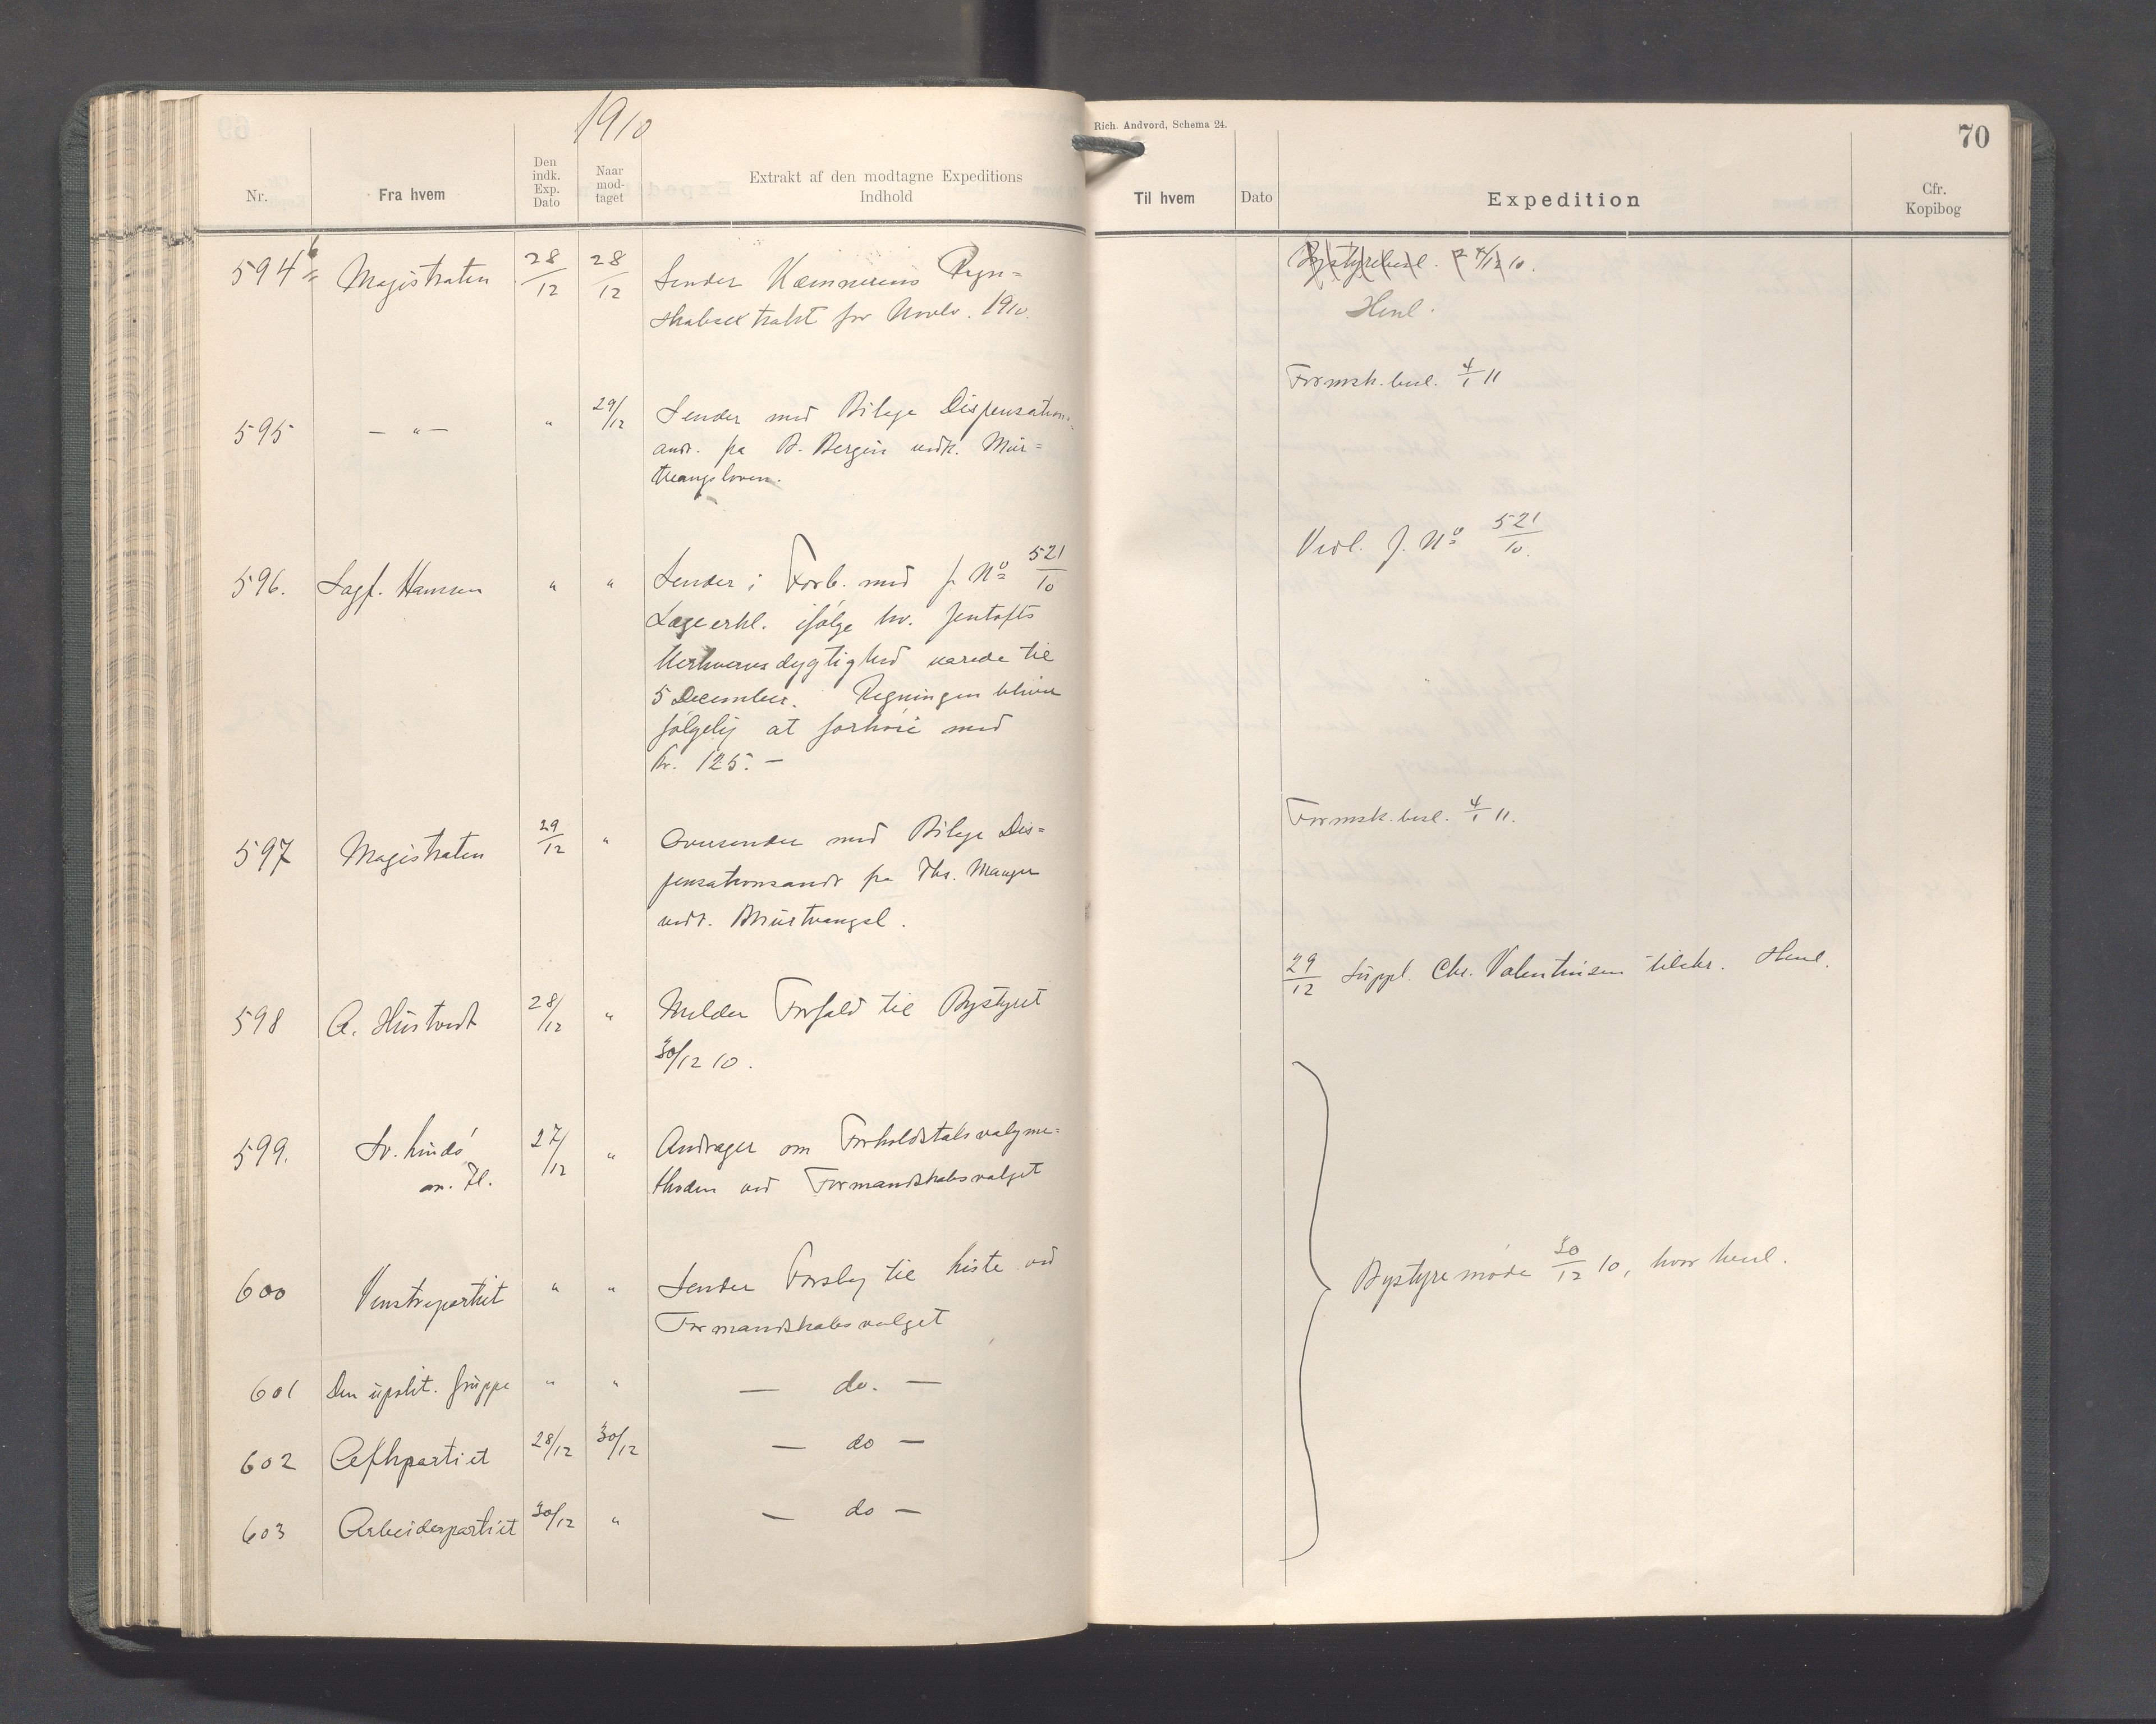 1910
Nr.
Fra hvem
Den indk. Exp. Dato
Naar mod-taget
Extrakt af den modtagne Expeditions
Indhold
594b
Magistraten
28/12
28/12
Sender Kæmnerens Regn=
skabsextrakt for Novbr. 1910.
595
— " —
"
29/12
Sender med Bilage Dispensations
andr. fra B. Bergin vedk. Mur=
tvangsloven.
596.
Sagf. Hansen
"
"
Sender i Forb. med J. No 521/10
Lægeerkl. ifølge hv. Jentofts
Uerhvervsdygtighed varede til
5 December. Regningen bliver
følgelig at forhøie med
Kr. 125.—
597
Magistraten
29/12
"
Oversender med Bilage Dis=
pensationsandr fra Ths. Manger
vedr. Murtvangsl.
598
A. Hustvedt
28/12
"
Melder Forfald til Bystyret
30/12 10.
599.
Sv. Lindø
m. Fl.
27/12
"
Andrager om Forholdstalsvalgme=
thoden ved Formandskabsvalget
600
Venstrepartiet
"
"
Sender Forslag til Liste ved
Formandskabsvalget
601
Den upolit. Gruppe
"
"
— do. —
602
Afhpartiet
28/12
30/12
— do —
603
Arbeiderpartiet
30/12
"
— do —
Rich. Andvord, Schema 24.
70
Til hvem
Dato
Expedition
Cfr.
Kopibog
Bystyrebesl. 10.
Henl.
Formsk. besl. 4/1 11
Vedl. J. No 521/10.
Formsk. besl. 4/1 11.
29/12 Suppl. Chr. Valentinsen tilskr. Henl.
Bystyremøde 30/12 10, hvor henl.